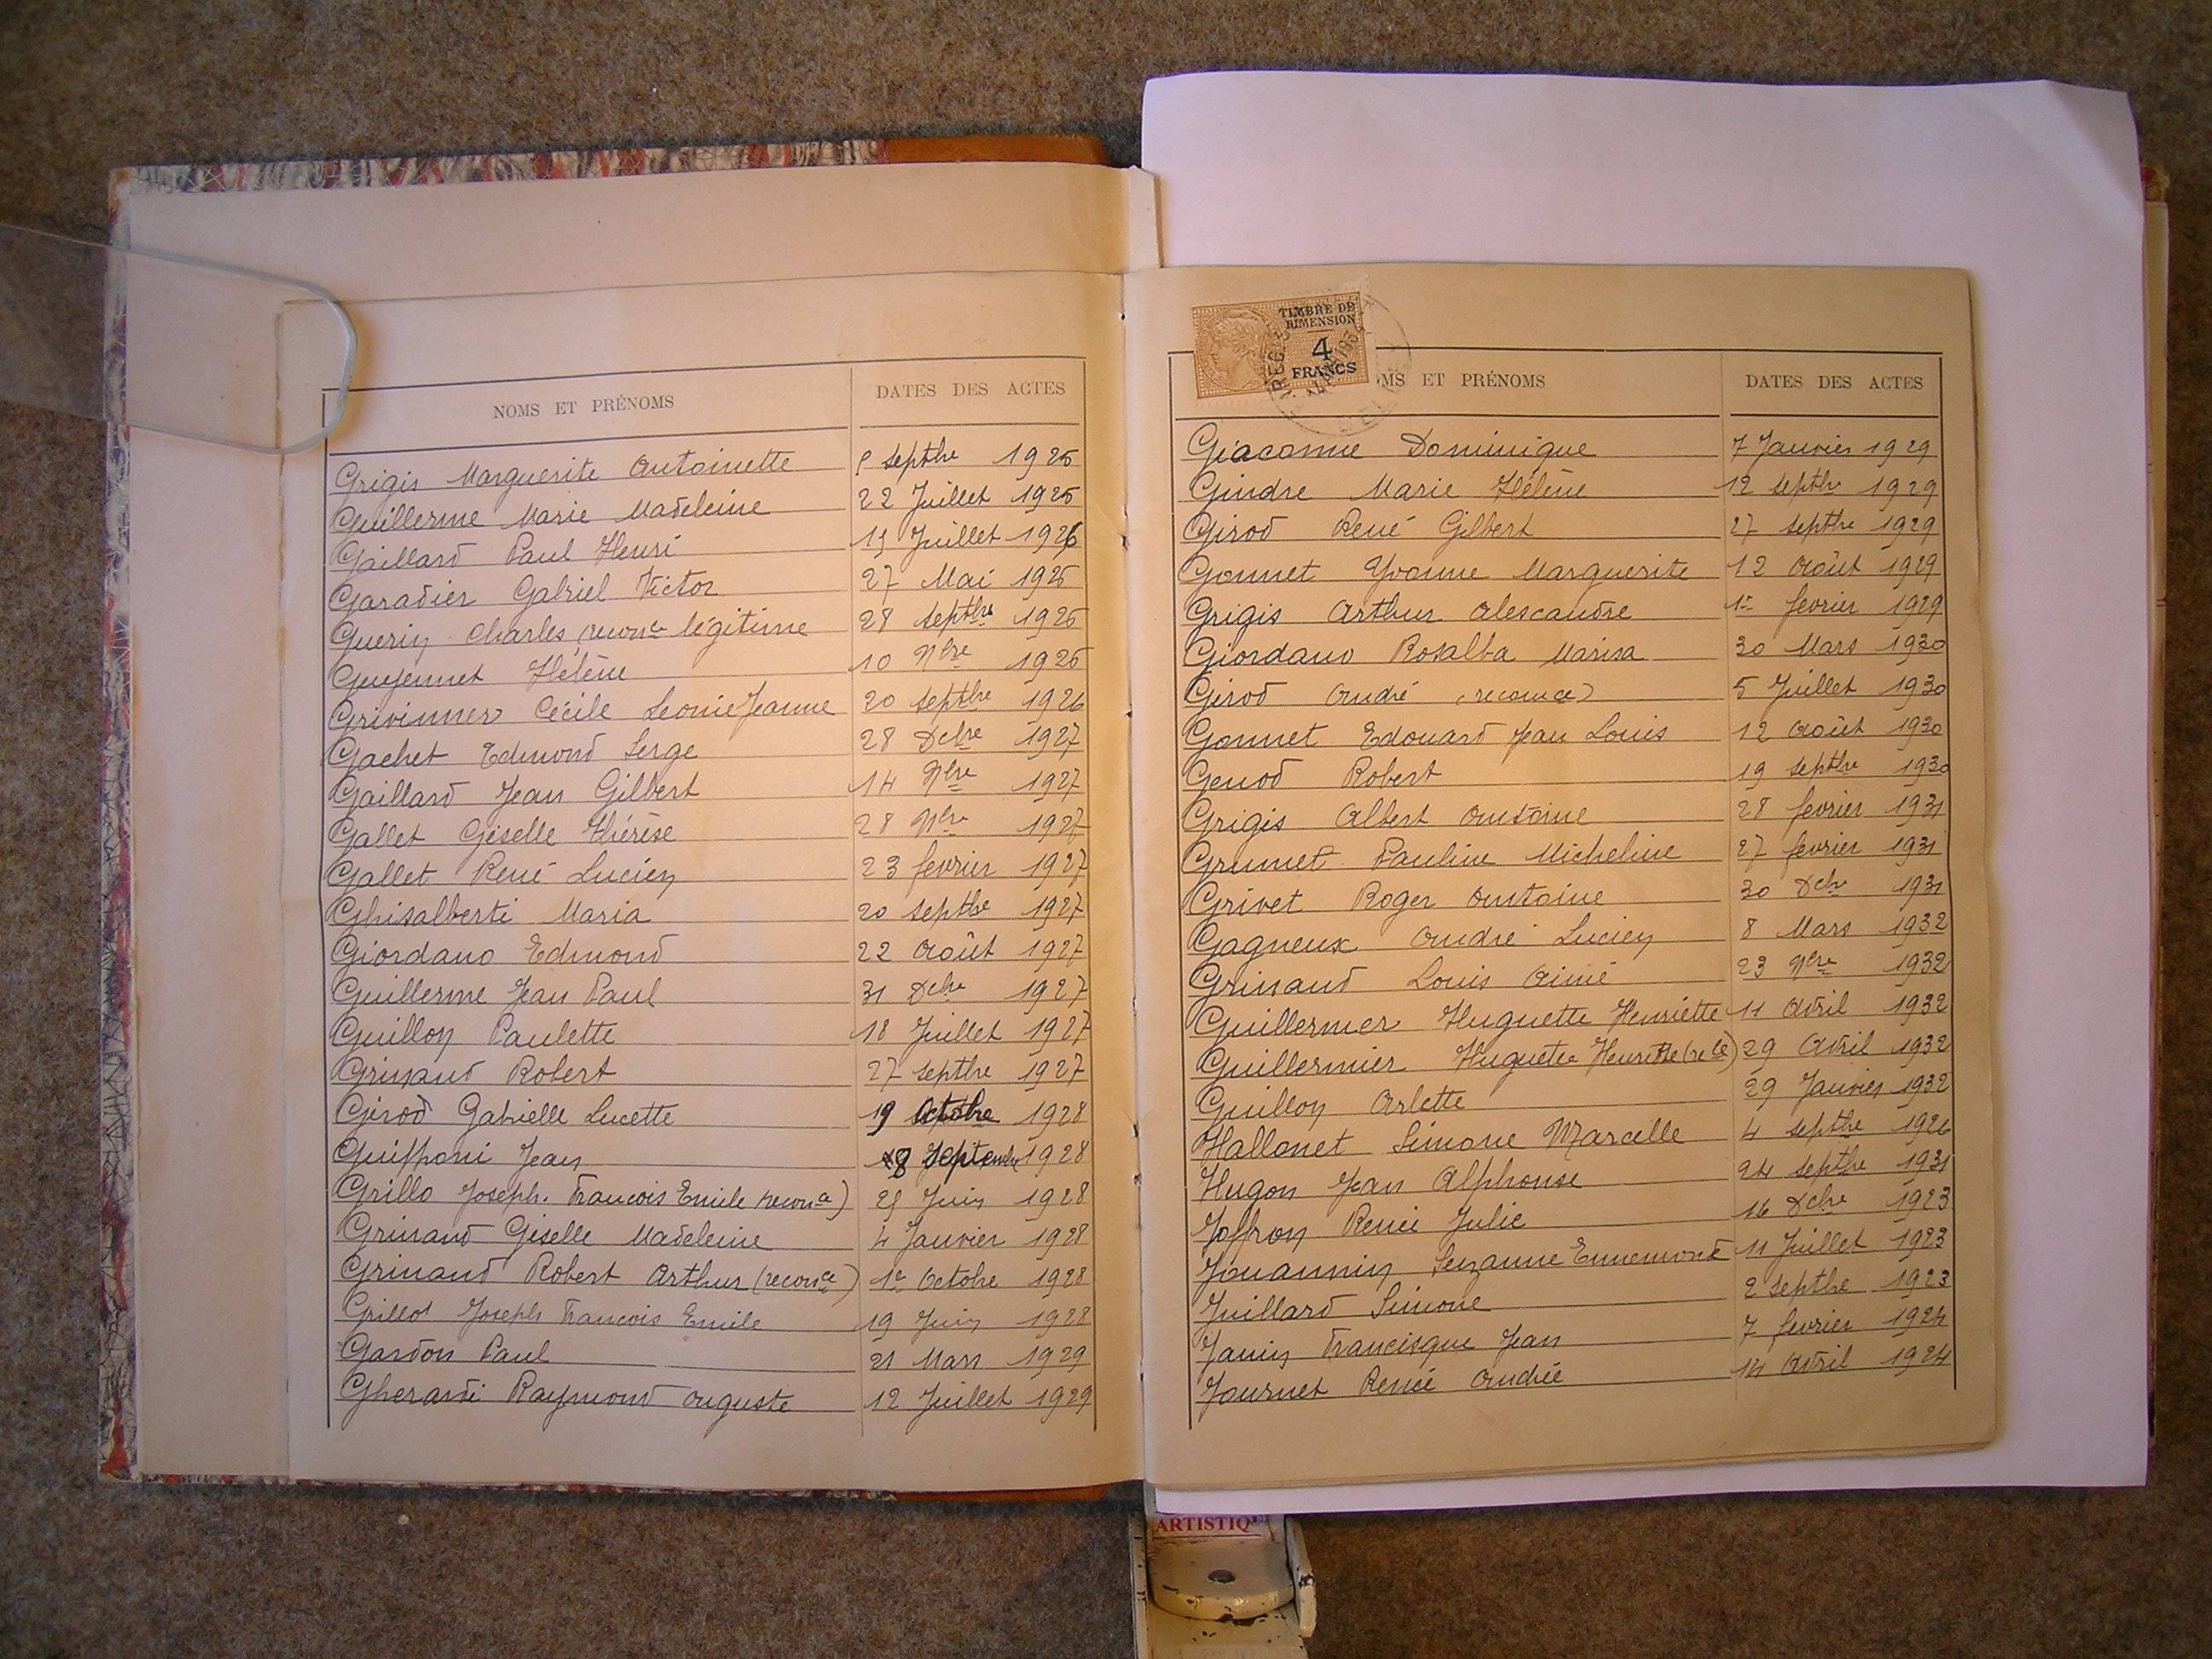 NOMS ET PRÉNOMS DATES DES ACTES
Grigis Marguerite Antoinette septbre 1925
Guillerme Marie Madeleine 22 Juillet 1925
Gaillard Paul Henri Juillet 1926
Garadier Gabriel Victor 27 Mai 1926
Guerin Charles (reconce légitime 28 septbre 1926
Guyennet Hélène 10 Nbre 1926
Cécile Leonie Jeanne 20 septbre 1926
Gachet Edmond Serge 28 Dcbre 1927
Gaillard Jean Gilbert 14 Nbre 1927
Gallet Giselle Thérèse 28 Nbre 1927
Gallet René Lucien 23 fevrier 1927
Ghisalberti Maria 20 septbre 1927
Giordano Edmond 22 Août 1927
Guillerme Jean Paul 31 Dcbre 1927
Guillon Paulette 18 Juillet 1927
Grinand Robert 27 septbre 1927
Girod Gabrielle Lucette 19 Octobre 1928
Jean 8 Septembre 1928
Grillo Joseph. Francois Emile reconce) Juin 1928
Grinand Giselle Madeleine 4 Janvier 1928
Grinand Robert Arthur (reconce) 1er Octobre 1928
Grillot Joseph Francois Emile 19 Juin 1928
Gardon Paul 21 Mars 1929
Gherardi Raymond Auguste 12 Juillet 1929
TIMBRE DE
DIMENSION
4
FRANCS
OMS ET PRÉNOMS DATES DES ACTES
Giacome Dominique 7 Janvier 1929
Gindre Marie Hélène 12 septbre 1929
Girod René Gilbert 27 septbre 1929
Gonnet Yvonne Marguerite 12 Août 1929
Grigis Arthur Alescandre 1er fevrier 1929
Giordano Rosalba Marisa 30 Mars 1930
Girod André (reconce) 5 Juillet 1930
Gonnet Edouard Jean Louis 12 Août 1930
Genod Robert 19 septbre 1930
Grigis Albert Antoine 28 fevrier 1931
Pauline Micheline 27 fevrier 1931
Grivet Roger Antoine 30 Dcbre 1931
Gagneux André Lucien 8 Mars 1932
Grinand Louis Aimé 23 Nbre 1932
Guillermer Huguette Henriette 11 Avril 1932
Guillermier Huguette Henriette (rece) 29 Avril 1932
Guillon Arlette 29 Janvier 1932
Hallonet Simone Marcelle 4 septbre 1926
Hugon Jean Alphonse 24 septbre 1931
Joffron Renée Julie 16 Dcbre 1923
Jouannin Suzanne Ennemond 11 Juillet 1923
Juillard Simone 2 septbre 1923
Janin Francisque Jean 7 fevrier 1924
Journet Renée Andrée 14 Avril 1924
ARTISTIQ